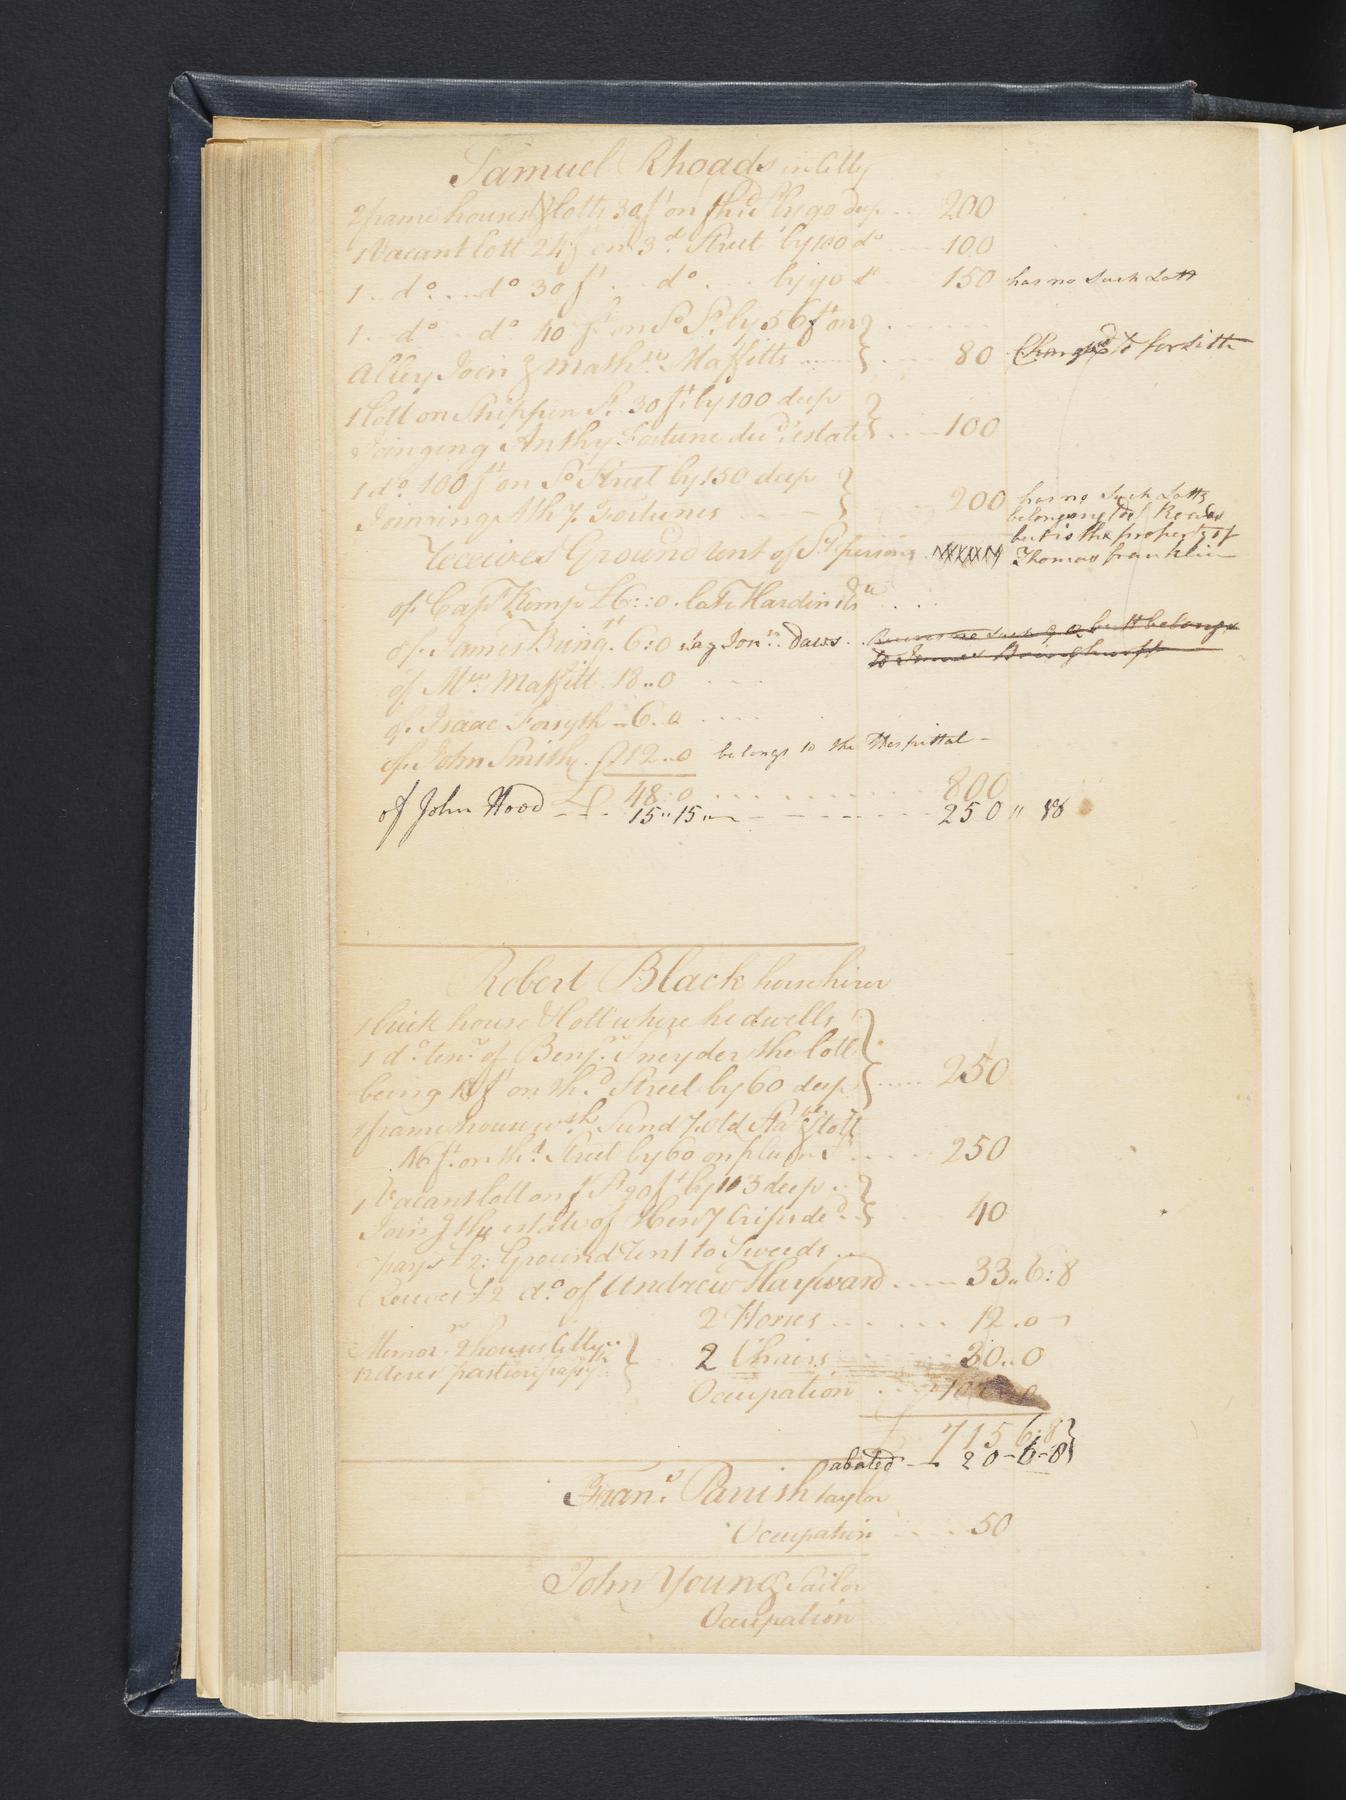 Samuel Rhoads in Citty
2 frame houses & lotts 30 ft on third by 90 deep .. 200
1 Vacant lott 24 ft on 3d Street by 100 do .... 100
1 .. do ... do 30 ft ... do .... by 90 do 150 has no such Lott
1 .. do ... do 40 ft on So St. by 56 ft on
Alley Join g Mathw Maffitts .... 80 Charged to forsith
1 lott on Shippen St. 30 ft by 100 deep
Joinging Anthy Fortune decd estate .... 100
1 do 100 ft on So Street by 150 deep
Joinning Athy Fortunes 200 has no Such Lotts
belonging to S Roads
but is the property of
Thomas franklin
Receives Ground Rent of Sd persons
of Capt Kemp £6::0 . late Hardin
of James Bring 6:0 say Jonn Daws ..
to James Bringhurst
of Mrs Maffitt 18..0
of Isaac Forsyth - 6..0
of John Smith . £12..0 belongs to the Hospittal -
£ 48:0 .... 800
of John Hood - 15"15" - - - 250 "
Robert Black horse hirer
1 brick house & lott where he dwells
1 do tent of Benjn Sneyder the lott
being 18 ft on thd Street by 60 deep .... 250
1 frame house &lott
16 ft on thd Street by 60 on plum St .... 250
1 Vacant lott on St 90 ft by 103 deep ..
Join g the estate of Heny Crips decd .. 40
pays £2: Ground Rent to Sweeds ..
Receives £2 do of Andrew Hayward .... 33..6:8
2 Horses .... 12..0
Memor 2 houses Citty ..
12 Acres pasture
2 Chairs .... 30..0
Occupation
715 6:8
abated - 20-6-8
Frans Parrish taylor
Occupation .... 50
John Young Sailor
Occupation